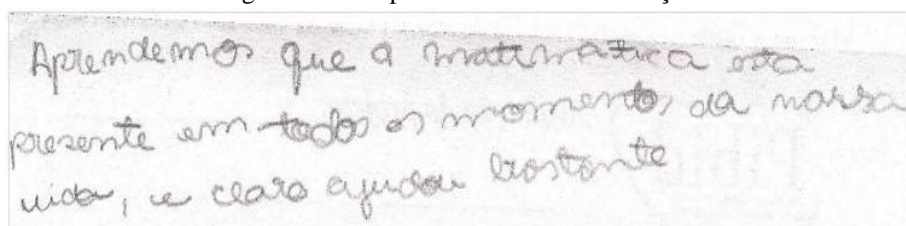 Aprendemos que a matematica esta
presente em todos os momentos da nossa
vida, e claro ajudou bastante